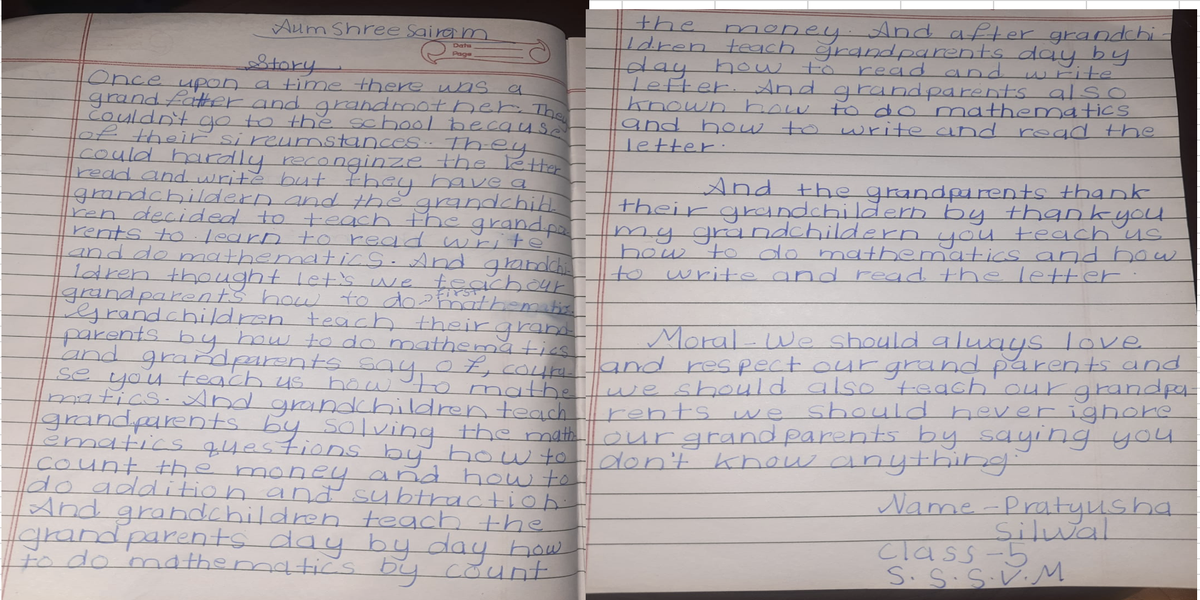 Aum Shree Sairam
Date
Page
Story
Once upon a time there was a
grand father and grandmother. They
couldn't go to the school because
of their sircumstances. They
could hardly reconginze the letter
read and write but they have a
grandchildern and the grandchild
ren decided to teach the grandpa
rents to learn to read write
and do mathematics. And grandchi
ldren thought let's we teach our
grandparents how to do first mathematics
grandchildren teach their grand
parents by how to do mathematics
and grandparents say of, cour
se you teach us how to mathe
matics. And grandchildren teach
grandparents by solving the math
ematics questions by how to
count the money and how to
do addition and subtraction.
And grandchildren teach the
grandparents day by day how
to do mathematics by count
the money. And after grandchi-
ldren teach grandparents day by
day how to read and write
letter. And grandparents also
known how to do mathematics
and how to write and read the
letter.
And the grandparents thank
their grandchildern by thank you
my grandchildern you teach us
how to do mathematics and how
to write and read the letter.
Moral - We should always love
and respect our grand parents and
we should also teach our grandpa
rents we should never ignore
our grand parents by saying you
don't know anything.
Name - Pratyusha
Silwal
Class - 5
S. S. S. V. M